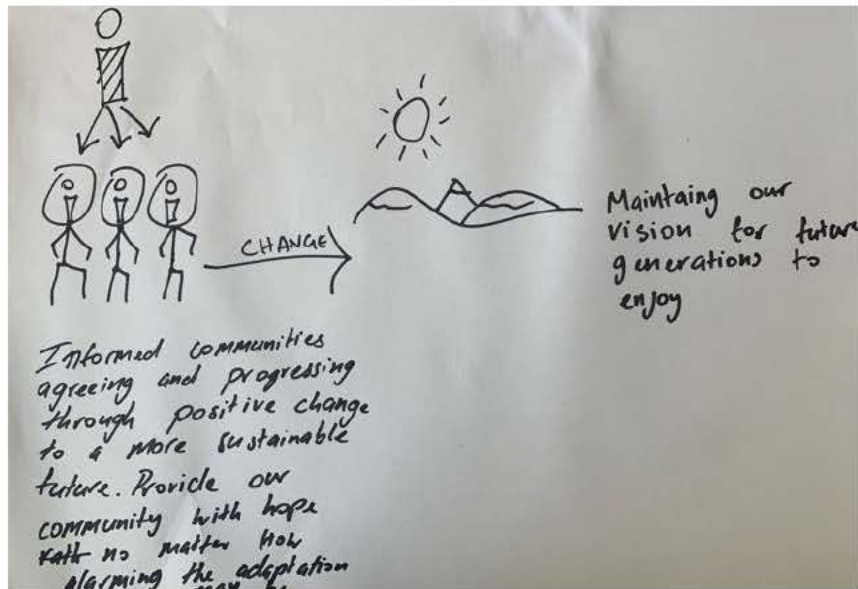 CHANGE
Maintaing our
vision for future
generations to
enjoy
Informed communities
agreeing and progressing
through positive change
to a more sustainable
future. Provide our
community with hope
no matter how
alarming the adaptation
may